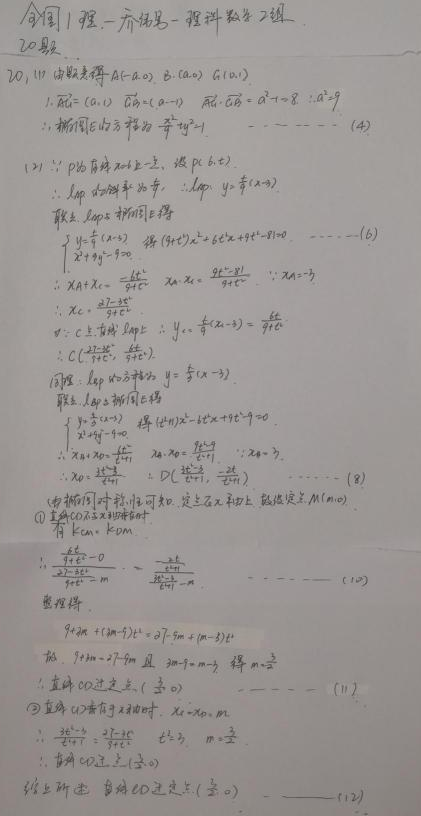 全国1理-乔伟男-理科数学2组
20题
20, (1) 由题意得 A(-a.0) B.(a.0) G(0.1)
∴ AG=(a,1) GB=(a-1) AG·GB=a²-1=8 ∴a²=9
∴椭圆E的方程为 x²/9+y²=1 ------- (4)
(2) ∵ P为直线x=6上一点, 设P(6.t)
∴ lAP的斜率为t/9, ∴lAP: y=t/9(x-3)
联立lAP与椭圆E得
{ y=t/9(x-3) x²+9y²-9=0 得(9+t²)x²+6t²x+9t²-81=0 ------(6)
∴ xA+xC=-6t²/9+t² xA·xC=9t²-81/9+t² ∵xA=-3
∴ xC=27-3t²/9+t²
又∵ C点在直线lAP上 ∴ yC=t/9(xC-3)=6t/9+t²
∴ C(27-3t²/9+t², 6t/9+t²)
同理: lBP的方程为 y=t/3(x-3)
联立lBP与椭圆E得
{ y=t/3(x-3) x²+9y²-9=0 得(t²+1)x²-6t²x+9t²-9=0
∴ xB+xD=6t²/t²+1 xB·xD=9t²-9/t²+1 ∵xB=3
∴ xD=3t²-3/t²+1 ∴ D(3t²-3/t²+1, -2t/t²+1) ------ (8)
由椭圆对称性可知 定点在x轴上 故设定点M(m.0)
① 直线CD不与x轴垂直时
有 kCM=kDM
∴ (6t/9+t² -0)/(27-3t²/9+t² -m) = (-2t/t²+1)/(3t²-3/t²+1 -m) ------- (10)
整理得
9+3m+(3m-9)t²=27-9m+(m-3)t²
故 9+3m=27-9m 且 3m-9=m-3 得m=3/2
∴直线CD过定点(3/2.0) ----- (11)
② 直线CD垂直于x轴时 xC=xD=m
∴ 3t²-3/t²+1=27-3t²/9+t² t²=3 m=3/2
∴直线CD过点(3/2.0)
综上所述 直线CD过定点(3/2.0) ------ (12)